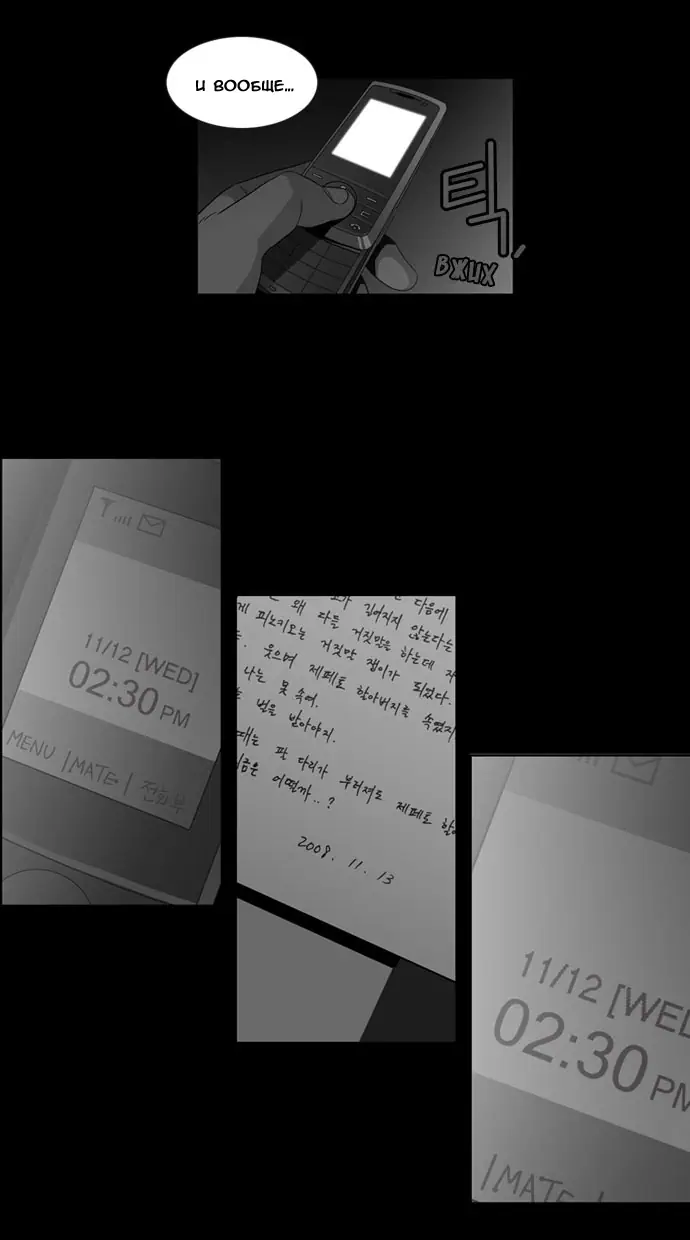 И ВООБЩЕ...
틱
ВЖИХ
11/12 [WED]
02:30 PM
MENU | MATE | 전화부
다음에
길어지지 않는다는
왜 다들 거짓말을 하는데
게 피노키오는 거짓말 쟁이가 되었다.
웃으며 제페토 할아버지를 속였지
나는 못 속여.
벌을 받아야지.
때는 팔 다리가 부러져도 제페토 할아
어떨까..?
2008. 11. 13
11/12 [WED
02:30 PM
| MATE |